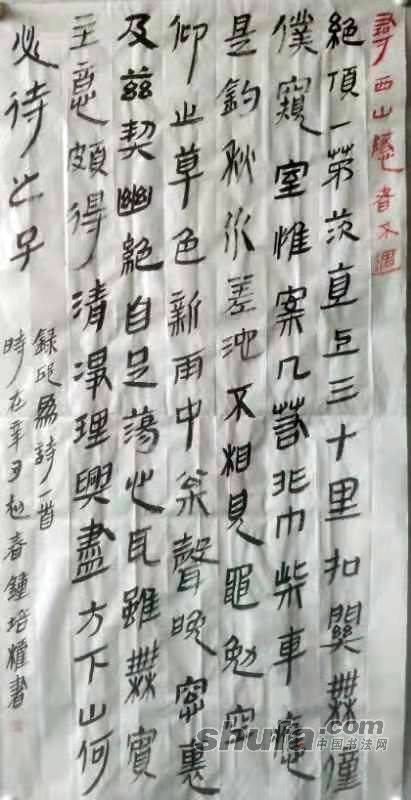 尋西山隱者不遇
絕頂一茅茨直上三十里扣關無僮
僕窺室惟案几若非巾柴車應
是釣秋水差池不相見黽勉空
仰止草色新雨中松聲晚窓裏
及兹契幽絕自足蕩心耳雖無賓
主意頗得清淨理興盡方下山何
必待之子
録邱為詩一首
時在辛丑初春鍾培 書
shufa.com
中国书法网